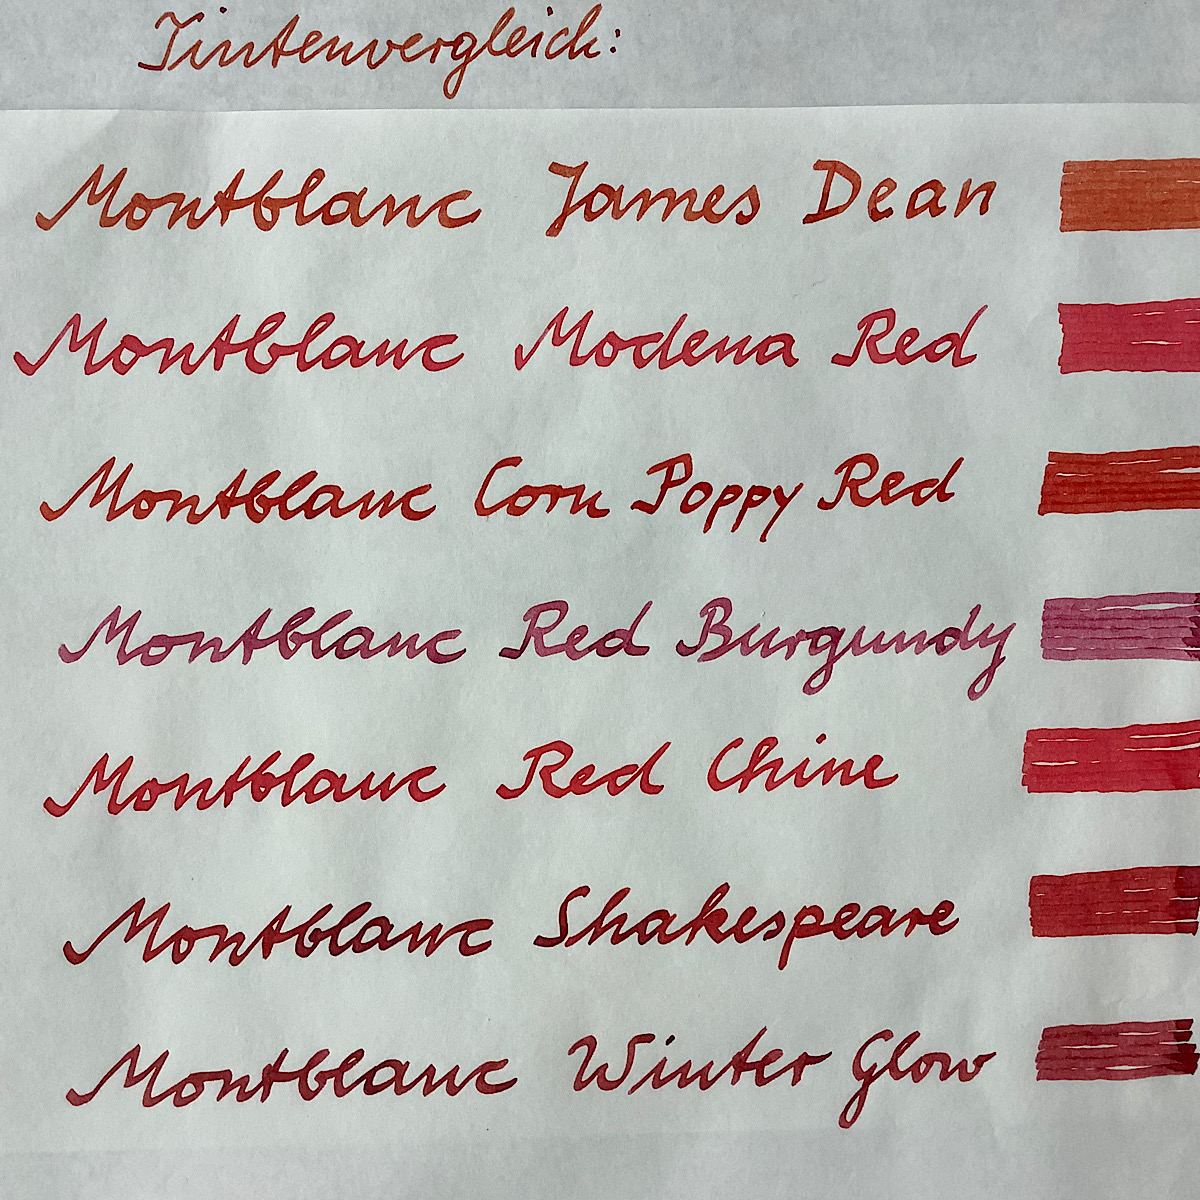 Tintenvergleich:
Montblanc James Dean
Montblanc Modena Red
Montblanc Corn Poppy Red
Montblanc Red Burgundy
Montblanc Red Chine
Montblanc Shakespeare
Montblanc Winter Glow